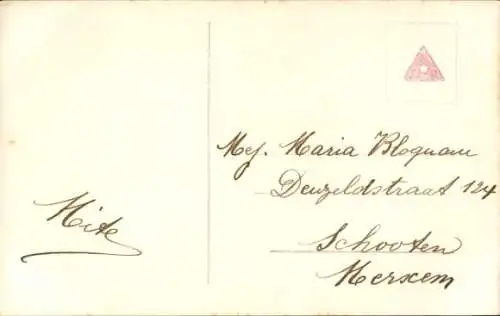 Mite
Mej. Maria Bloquau
Deuzeldstraat 124
Schooten
Merxem